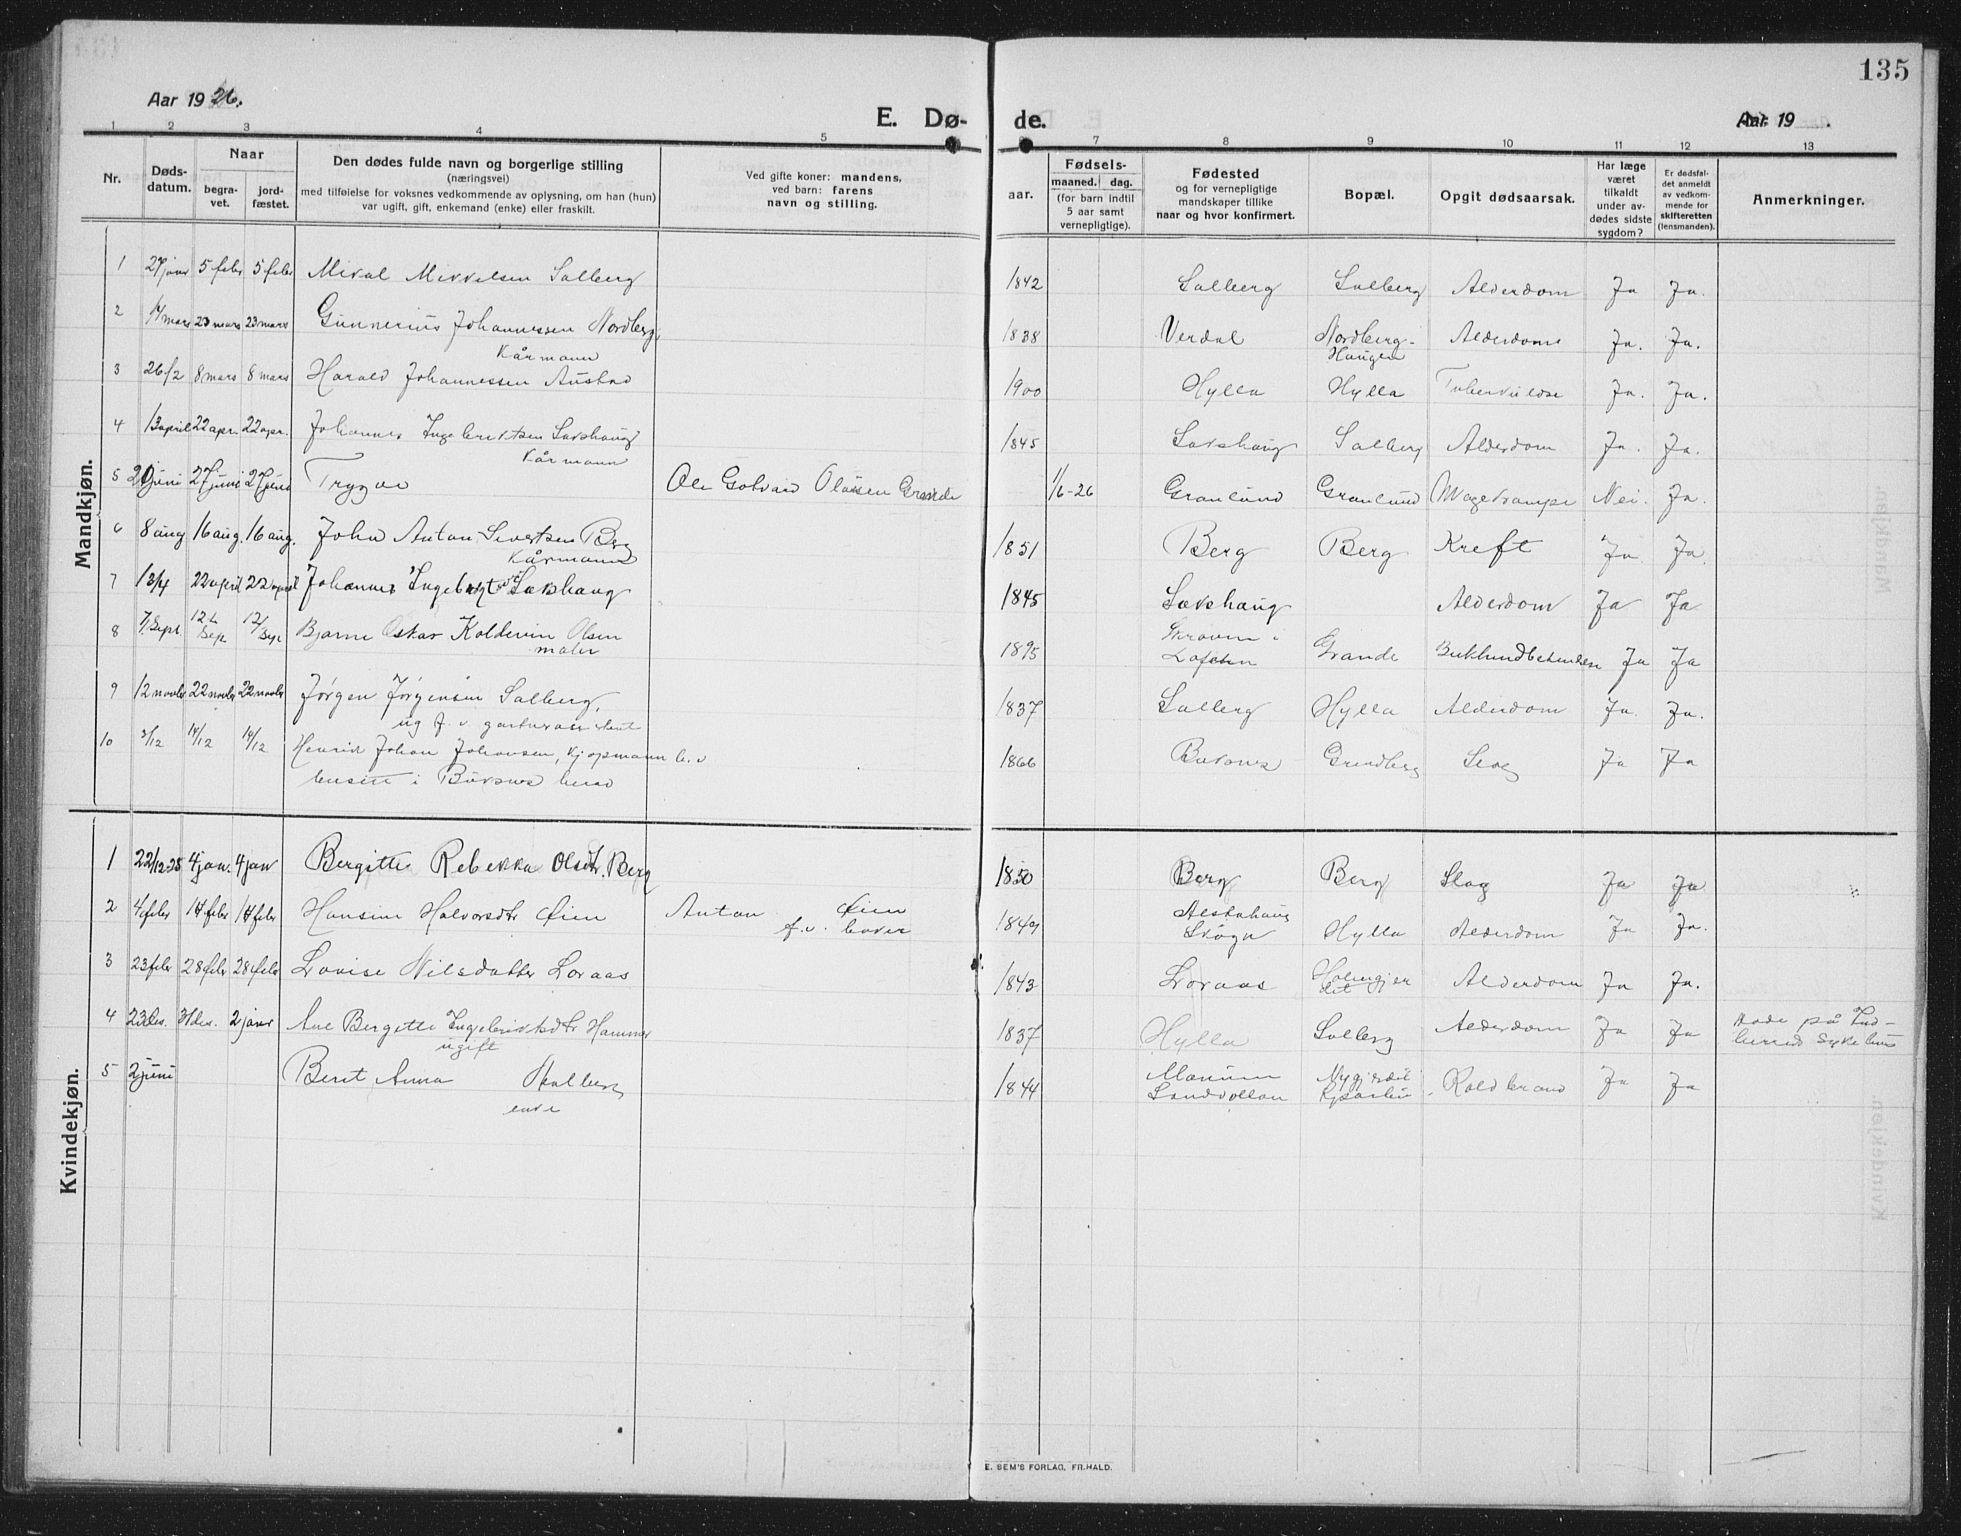 135
Aar 1926.
E. Dø-
de.
Aar 19 .
1 2 3 4 5 7 8 9 10 11 12 13
Nr.
Døds-
datum.
Naar
begra-
vet.
jord-
fæstet.
Den dødes fulde navn og borgerlige stilling
(næringsvei)
med tilføielse for voksnes vedkommende av oplysning, om han (hun)
var ugift, gift, enkemand (enke) eller fraskilt.
Ved gifte koner: mandens,
ved barn: farens
navn og stilling.
aar.
Fødsels-
maaned. dag.
(for barn indtil
5 aar samt
vernepligtige).
Fødested
og for vernepligtige
mandskaper tillike
naar og hvor konfirmert.
Bopæl.
Opgit dødsaarsak.
Har læge
været
tilkaldt
under av-
dødes sidste
sygdom?
Er dødsfal-
det anmeldt
av vedkom-
mende for
skifteretten
(lensmanden).
Anmerkninger.
Mandkjøn.
1 27 januar 5 febr 5 febr Mikal Mikkelsen Salberg 1842 Salberg Salberg Alderdom Ja Ja.
2 14 mars 23 mars 23 mars Gunnerius Johannessen Nordberg 1838 Verdal Nordberg- Alderdom Ja. Ja.
kårmann Haugen
3 26/2 8 mars 8 mars Harald Johannessen Austad 1900 Hylla Hylla Tuberkulose Ja. Ja.
4 13 april 22 apr. 22 apr. Johannes Ingebriktsen Sakshaug 1845 Sakshaug Salberg Alderdom Ja. Ja.
kårmann
5 20 juni 27 juni 27 juni Trygve Ole Gotvard Olaisen Grande 1/6-26 Granlund Granlund Magekrampe Nei. Ja.
6 8 aug 16 aug. 16 aug. John Anton Sivertsen Berg 1851 Berg Berg Kreft Ja. Ja.
Kårmann
7 13/4 22 april 22 april Johannes Ingebrigts. Sakshaug 1845 Sakshaug Alderdom Ja Ja
8 7/Sept. 12/Sep 12/Sep Bjarne Oskar Kolderin Olsen 1895 Skroven i Grande Ja Ja
maler Lofoten
9 12 novbr 22 novbr 22 novbr Jørgen Jørgensen Salberg, 1837 Salberg Hylla Alderdom Ja. Ja.
ug f. v.
10 3/12 14/12 14/12 Henrik Johan Johansen, kjøpmann b. v 1866 Buksnes Grundberg Slag Ja Ja
bosatt i Buksnes herad
Kvindekjøn.
1 22/12-25 4 jan. 4 jan Bergitte Rebekka Olsdtr. Berg 1850 Berg Berg Slag Ja Ja
2 4 febr 14 febr 14 febr Hansine Halvorsdtr Øien Anton Øien 1849 Alstahaug Hylla Alderdom Ja Ja.
f. v. baker Skogn
3 23 febr 28 febr 28 febr Lovise Nilsdatter Loraas 1843 Loraas Alderdom Ja Ja.
4 23 des. 31 des. 2 januar Ane Bergitte Ingebriktsdtr Hammer 1837 Hylla Salberg Alderdom Ja Ja Døde på Ind-
ugift herred sykehus
5 2 juni Berit Anna Kolberg 1844 Marium Koldbrand Ja Ja
enke Sandvollan
E. SEM'S FORLAG, FR.HALD.